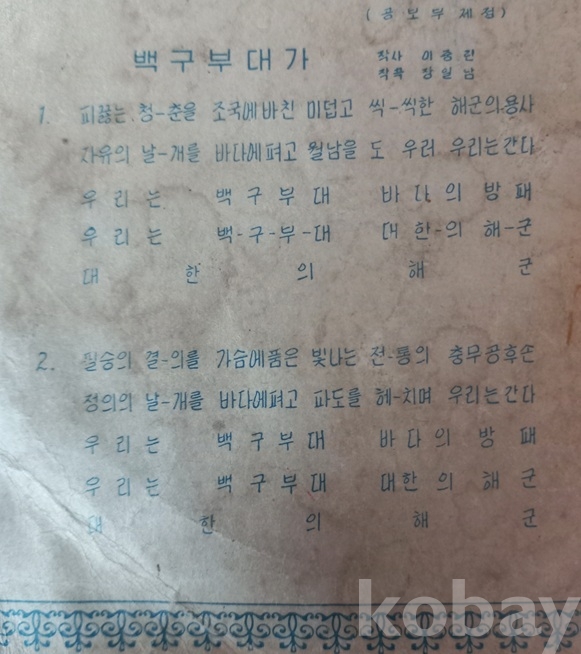 (공보부제정)
백구부대가
작사 이종린
작곡 장일남
1. 피끓는 청-춘을 조국에바친 미덥고 씩-씩한 해군의용사
자유의 날-개를 바다에펴고 월남을 도 우러 우리는간다
우 리 는 백 구 부 대 바 다 의 방 패
우 리 는 백-구-부-대 대 한-의 해-군
대 한 의 해 군
2. 필승의 결-의를 가슴에품은 빛나는 전-통의 충무공후손
정의의 날-개를 바다에펴고 파도를 헤-치며 우리는간다
우 리 는 백 구 부 대 바 다 의 방 패
우 리 는 백 구 부 대 대한 의 해 군
대 한 의 해 군
kobay